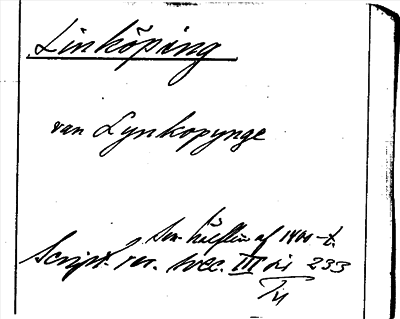 Linköping
van Lynkopynge
sen. hälften af 1400-t.
Script. rer. svec. III 233